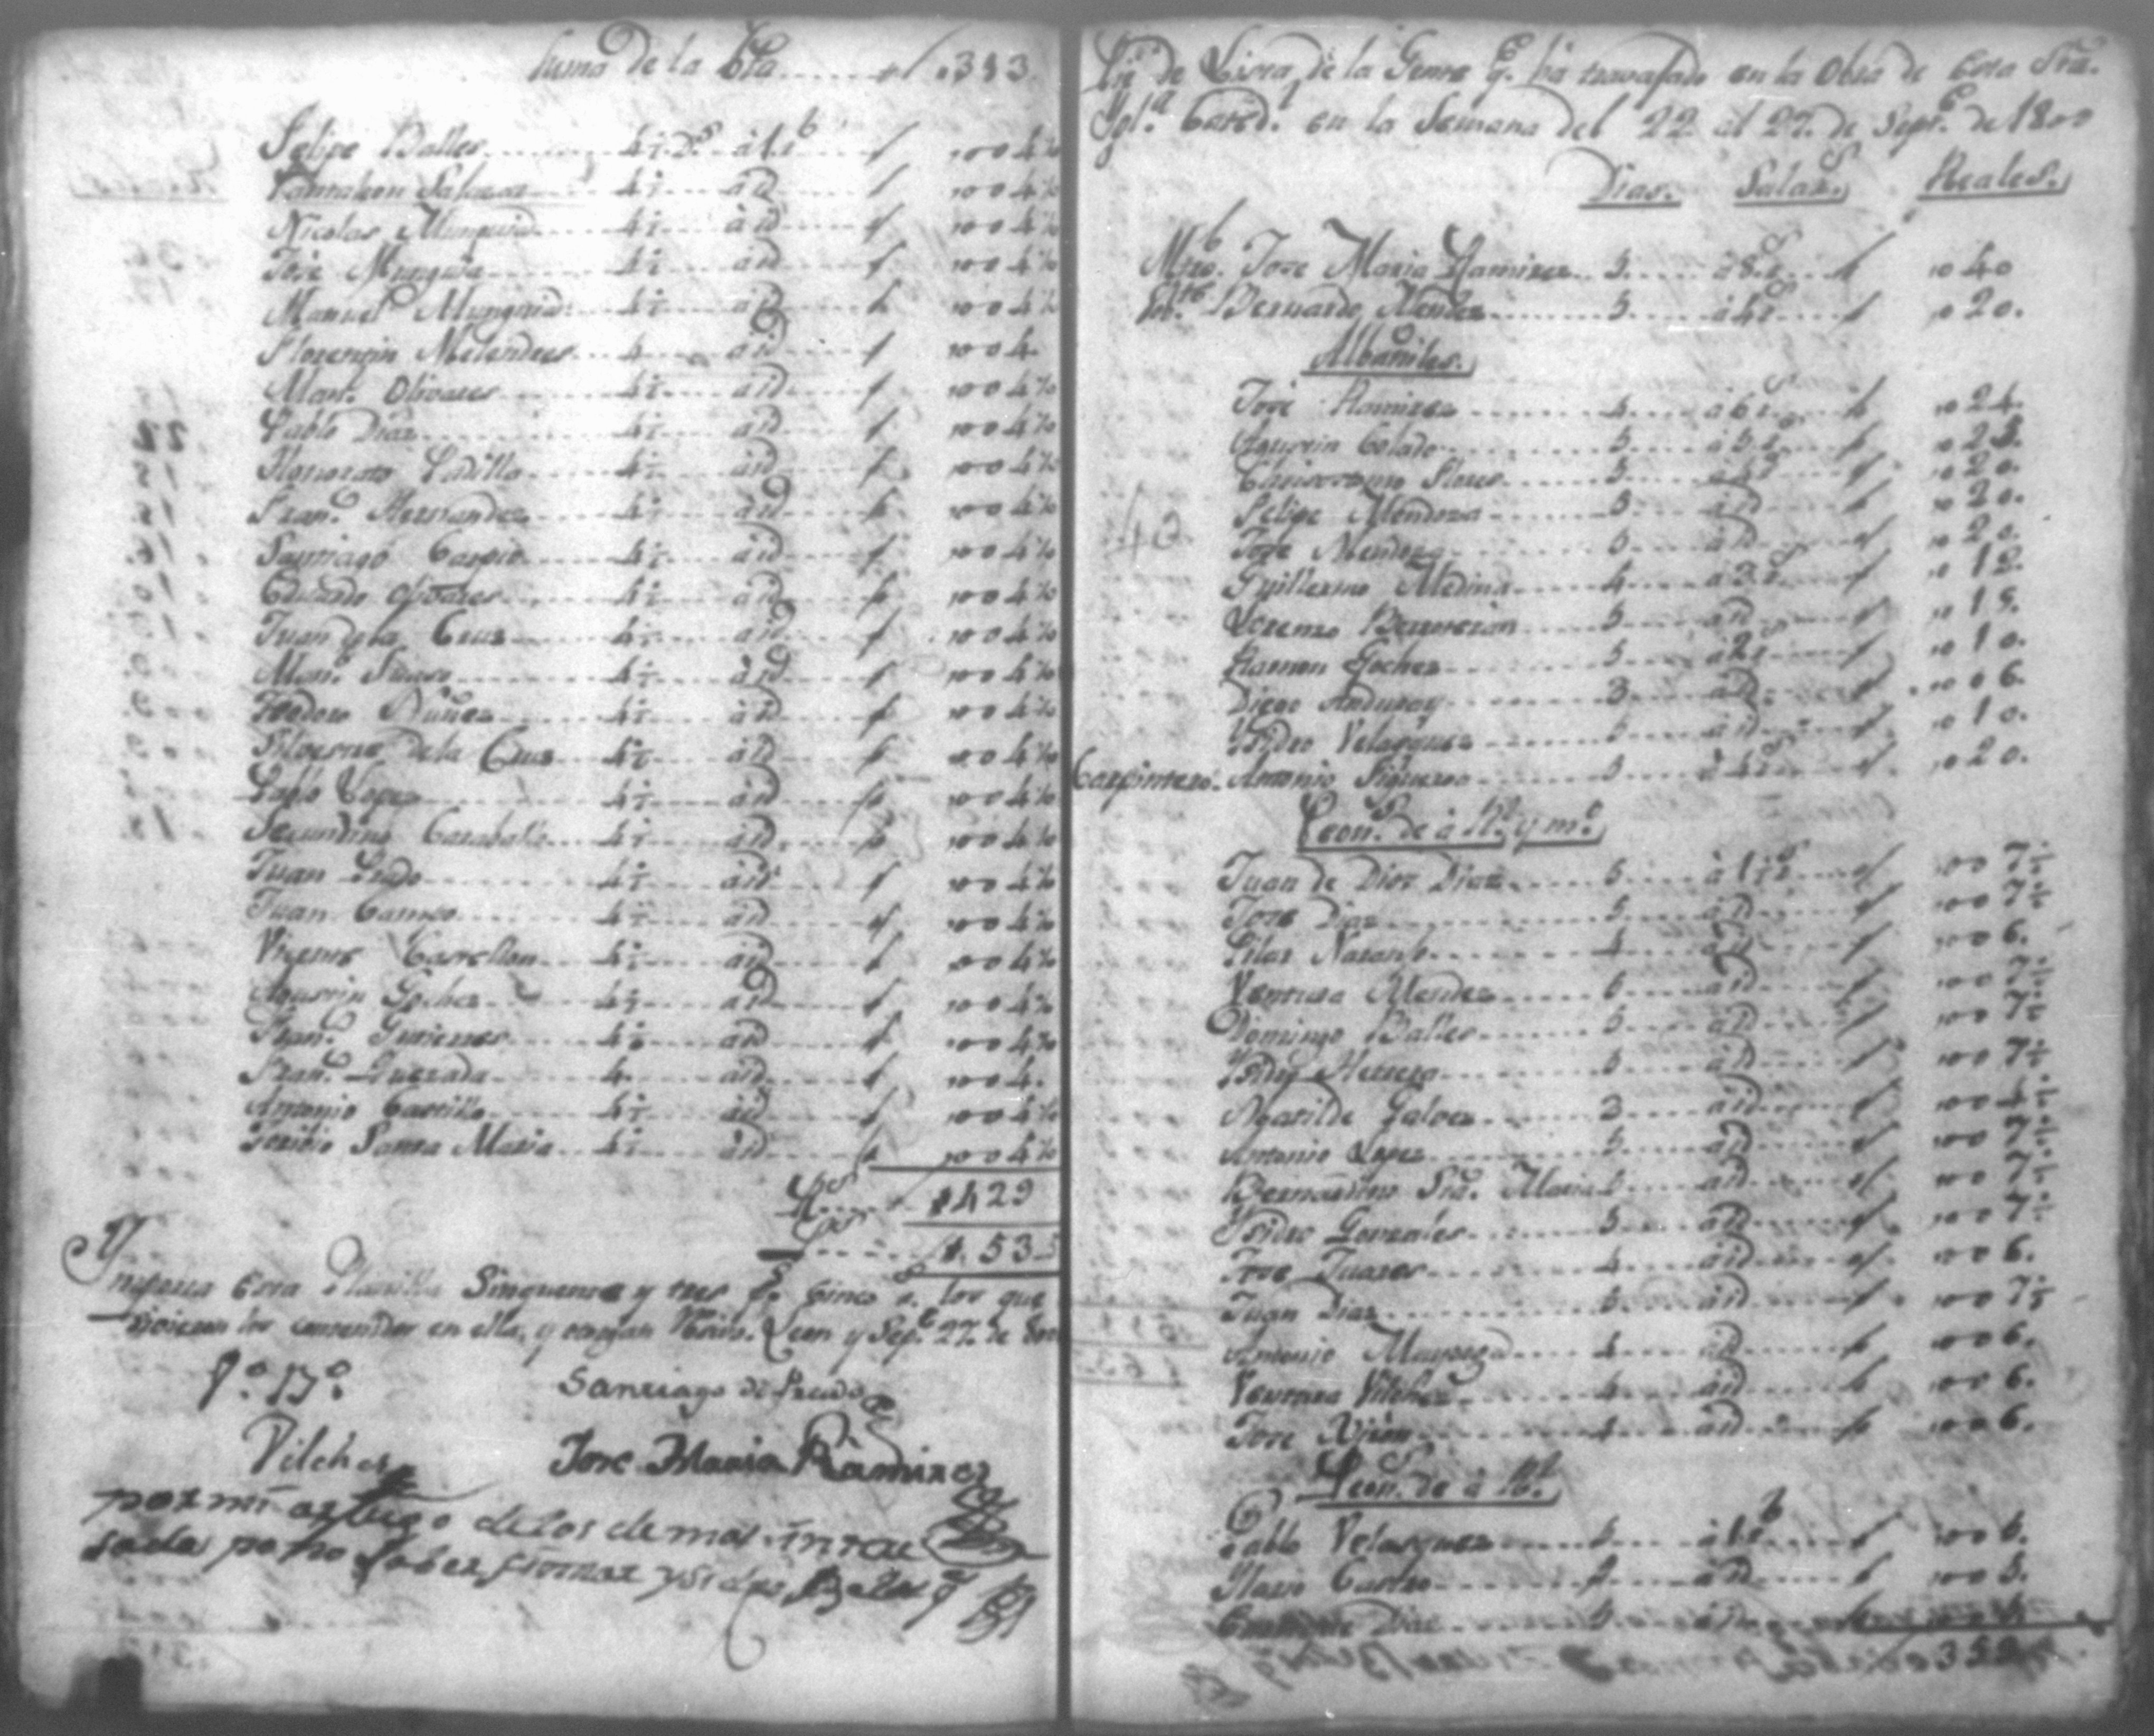 Suma de la bta ...... 313
Felipe Balles ...... 4½ Ds à 1 r ...... 004½
Pantaleon Salazar ...... 4½ ...... à id ...... 004½
Nicolas Munguia ...... 4½ ...... à id ...... 004½
Jose Munguia ...... 4½ ...... à id ...... 004½
Manuel Munguia ...... 4½ ...... à id ...... 004½
Florencio Melendres ...... 4 ...... à id ...... 004.
Man.l Olivares ...... 4½ ...... à id ...... 004½
Pablo Diaz ...... 4½ ...... à id ...... 004½
Honorato Padilla ...... 4½ ...... à id ...... 004½
Fran.co Hernandez ...... 4½ ...... à id ...... 004½
Santiago ...... 4½ ...... à id ...... 004½
Eduardo ...... 4½ ...... à id ...... 004½
Juan dela Cruz ...... 4½ ...... à id ...... 004½
Man.l Suaso ...... 4½ ...... à id ...... 004½
Teodoro Nuñez ...... 4½ ...... à id ...... 004½
Silvestre de la Cruz ...... 4½ ...... à id ...... 004½
Pablo Lopez ...... 4½ ...... à id ...... 004½
Secundino Caraballo ...... 4½ ...... à id ...... 004½
Juan Prado ...... 4½ ...... à id ...... 004½
Juan Campo ...... 4½ ...... à id ...... 004½
Vicente Castellon ...... 4½ ...... à id ...... 004½
Agustin Gochez ...... 4½ ...... à id ...... 004½
Fran.co Gutierres ...... 4½ ...... à id ...... 004½
Fran.co Quezada ...... 4. ...... à id ...... 004.
Antonio Castillo ...... 4½ ...... à id ...... 004½
Toribio Santa Maria ...... 4½ ...... à id ...... 004½
Rs ...... 429
Ps ...... 53.5
Importa esta Planilla Sinquenta y tres ps. cinco rs. los que
resivieron los contenidos en ella, y otorgan Reivo. Leon y Sept.e 27 de 800
V.o B.o
Santiago de Prado
Vilches
Jose Maria Ramirez
por mi arruego de los demas intere
sados por no saber firmar ysidro Belasq.z
Lic de Lista de la Gente q.e ha travajado en la Obra de Esta Sta.
Ygl.a Cated.l en la Semana del 22 al 27 de Sept.e de 1800
Dias. Salar.s Reales.
Mtro. Jose Maria Ramirez ...... 5 ...... à 8 rs ...... 040
Bernardo Mendez ...... 5 ...... à 4 rs ...... 020.
Albañiles.
Jose Ramirez ...... 4 ...... à 6 rs ...... 024.
Agustin Colado ...... 5 ...... à 5 rs ...... 025.
Chrisostomo Flores ...... 5 ...... à 4 rs ...... 020.
Felipe Mendoza ...... 5 ...... à id ...... 020.
Jose Mendoza ...... 5 ...... à id ...... 020.
Guillermo Medina ...... 4 ...... à 3 rs ...... 012.
Lorenzo ...... 5 ...... à id ...... 015.
Ramon Gochez ...... 5 ...... à 2 rs ...... 010.
Diego Anduray ...... 3 ...... à id ...... 006.
Ysidro Velasquez ...... 5 ...... à id ...... 010.
Carpintero. Antonio Figueroa ...... 5 ...... à 4 rs ...... 020.
Peon.s de à R.l y m.o
Juan de Dios Diaz ...... 5 ...... à 1½ rs ...... 007½
Jose Diaz ...... 5 ...... à id ...... 007½
Pilar Naranjo ...... 4 ...... à id ...... 006.
Ventura Mendez ...... 5 ...... à id ...... 007½
Domingo Balles ...... 5 ...... à id ...... 007½
Ysidro Herrera ...... 5 ...... à id ...... 007½
Matilde Galvez ...... 3 ...... à id ...... 004½
Antonio Lopez ...... 5 ...... à id ...... 007½
Bernardino Sta. Maria ...... 5 ...... à id ...... 007½
Ysidro Gonzales ...... 5 ...... à id ...... 007½
Jose Juares ...... 4 ...... à id ...... 006.
Juan Diaz ...... 5 ...... à id ...... 007½
Antonio Mayorga ...... 4 ...... à id ...... 006.
Ventura Vilches ...... 4 ...... à id ...... 006.
Jose ...... 4 ...... à id ...... 006.
Peon.s de à R.l
Pablo Velasquez ...... à 1 r ...... 00
Castro ...... à id ...... 005.
Diaz ...... 5 ...... à id ......